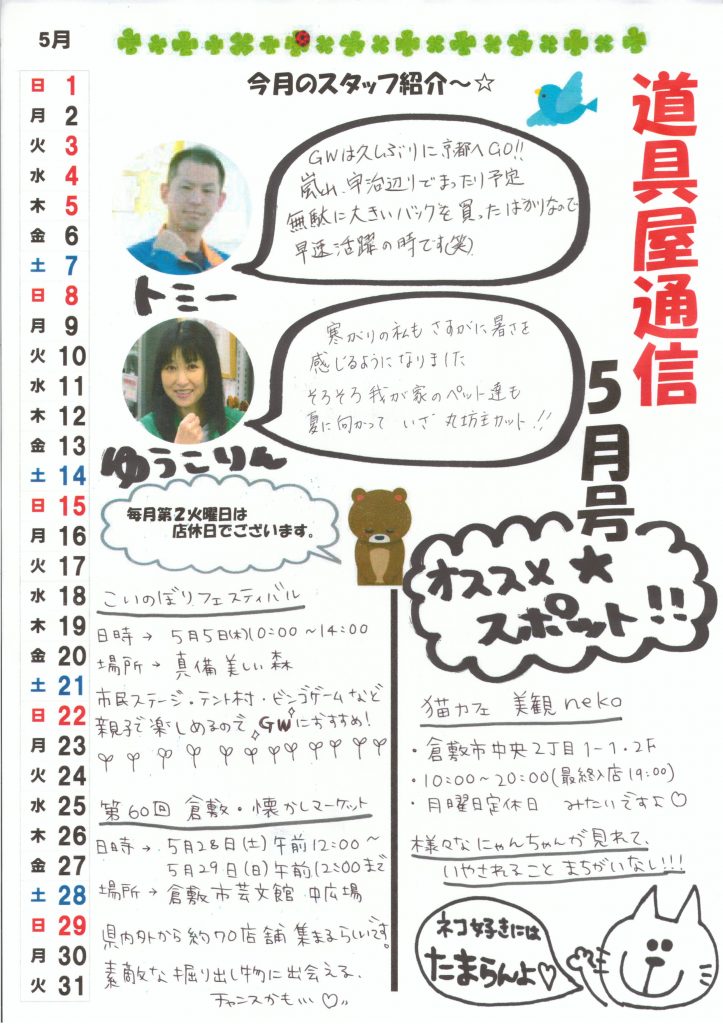 5月
日 1
月 2
火 3
水 4
木 5
金 6
土 7
日 8
月 9
火 10
水 11
木 12
金 13
土 14
日 15
月 16
火 17
水 18
木 19
金 20
土 21
日 22
月 23
火 24
水 25
木 26
金 27
土 28
日 29
月 30
火 31
道具屋通信
5月号
今月のスタッフ紹介～☆
GWは久しぶりに京都へGO!!
嵐山、宇治辺りでまったり予定
無駄に大きいバックを買ったばかりなので
早速活躍の時です(笑)
トミー
寒がりの私もさすがに暑さを
感じるようになりました
そろそろ我が家のペット達も
夏に向かって いざ 丸坊主カット!!
ゆうこりん
毎月第2火曜日は
店休日でございます。
こいのぼりフェスティバル
日時→ 5月5日(木)10:00～14:00
場所→ 真備美しい森
市民ステージ・テント村・ビンゴゲームなど
親子で楽しめるので GWにおすすめ!
第60回 倉敷・懐かしマーケット
日時→ 5月28日(土)午前12:00～
5月29日(日)午前12:00まで
場所→ 倉敷市芸文館 中広場
県内外から約70店舗 集まるらしいです!
素敵な掘り出し物に出会える、
チャンスかも… ♡
オススメ★
スポット!!
猫カフェ 美観neko
・倉敷市中央2丁目1-1.2F
・10:00～20:00(最終入店19:00)
・月曜日定休日 みたいですよ♡
様々なにゃんちゃんが見れて、
いやされること まちがいなし!!!
ネコ好きには
たまらんよ♡